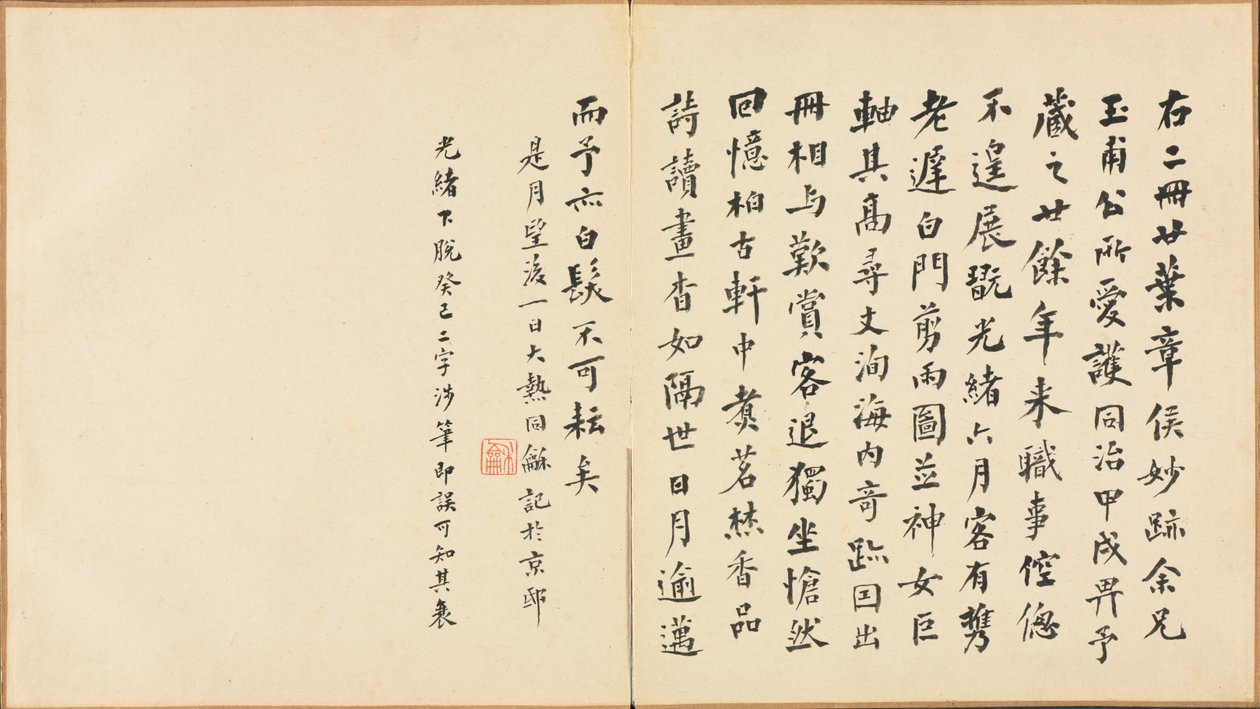 右二冊廿葉章侯妙跡余兄
玉甫公所愛護同治甲戌畀予
藏之廿餘年来職事倥偬
不遑展翫光緒六月客有攜
老遲白門剪雨圖並神女巨
軸其高尋丈洵海内奇跡因出
冊相与歎賞客退獨坐愴然
回憶柏古軒中煑茗焚香品
詩讀畫杳如隔世日月逾邁
而予亦白髮不可耘矣
是月望後一日大熱同龢記於京邸
光緒下脫癸巳二字涉筆即誤可知其衰